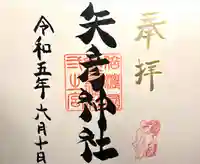 奉拝
矢彦神社
令和五年六月十日